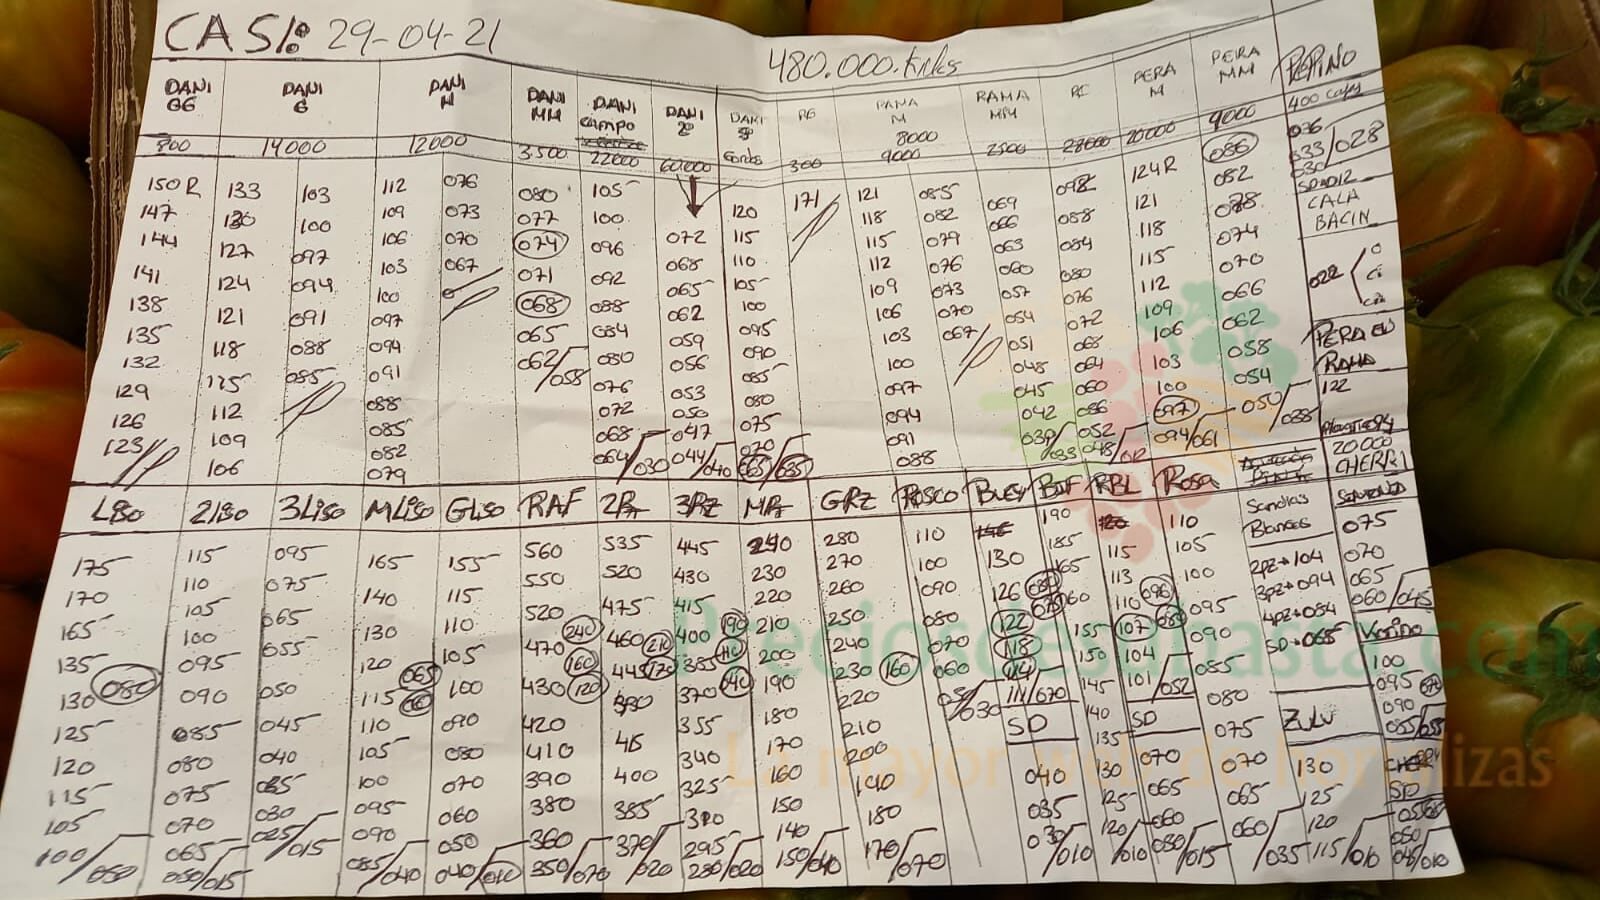 CASI: 29-04-21
480.000.Kilos
DANI GG
DANI G
DANI M
DANI MM
DANI CAMPO
DANI 2º
DANI
RG
RAMA M
RAMA MM
PERA M
PERA MM
PEPINO
800
14000
12000
3.500
22000
60.000
300
8000
9000
2500
28000
20000
9000
400
150R 133 103 112 076 080 105 120 171 121 085 069 092 124R 086
147 130 100 109 073 077 100 072 115 118 082 066 088 121 082
144 127 097 106 070 074 096 068 110 115 079 063 084 118 078
141 124 094 103 067 071 092 065 105 112 076 060 080 115 074
138 121 091 100 068 088 062 100 109 073 057 076 112 070
135 118 088 097 065 084 059 095 106 070 054 072 109 066
132 115 085 094 062/058 080 056 090 103 067 051 068 106 062
129 112 091 076 053 085 100 048 064 103 058
126 109 088 072 050 080 097 045 060 100 054
123 106 085 068 047 075 094 042 056 097 050/038
082 064/030 044/040 070 091 039/033 052 094/061
079 065/035 088 048/
036
033/028
030
CALA
BACIN
022
PERA EN
RAMA
122
20.000
CHERRI
LISO 2LISO 3LISO MLISO GLISO RAF 2RZ 3RZ MRZ GRZ ROSCO BUEY BUF RBL Rosa
Sandias
Blancas
2PZ→104
3PZ→094
4PZ→084
SD→065
ZULU
130
125
120
115/010
075
070
065
060/045
Verino
100
095
090
085/055
SD
050
045/010
175 115 095 165 155 560 535 445 240 280 110 190 110
170 110 075 140 115 550 520 430 230 270 100 130 185 115 105
165 105 065 130 110 520 475 415 220 260 090 126 165 113 100
135 100 055 120 105 470 460 400 210 250 080 122 160 110 095
130 080 095 050 115 100 430 445 385 200 240 070 118 155 107 090
125 090 045 110 090 420 430 370 190 230 060 114 150 104 085
120 085 040 105 080 410 415 355 180 220 050/030 111/070 145 101/052 080
115 080 035 100 070 390 400 340 170 210 SD 140 SD 075
105 075 030 095 060 380 385 325 160 200 040 135 070 070
100/050 070 025/015 090 050 360 370/020 310 150 190 035 130 065 065
065 085/040 040/010 350/070 295 140 180 030/010 125 060 060/035
050/015 280/020 130/040 170/070 120/010 050/015
240
160
120
210
170
190
140
160
065
060
096
Preciosdesubasta.com
La mayor web de hortalizas